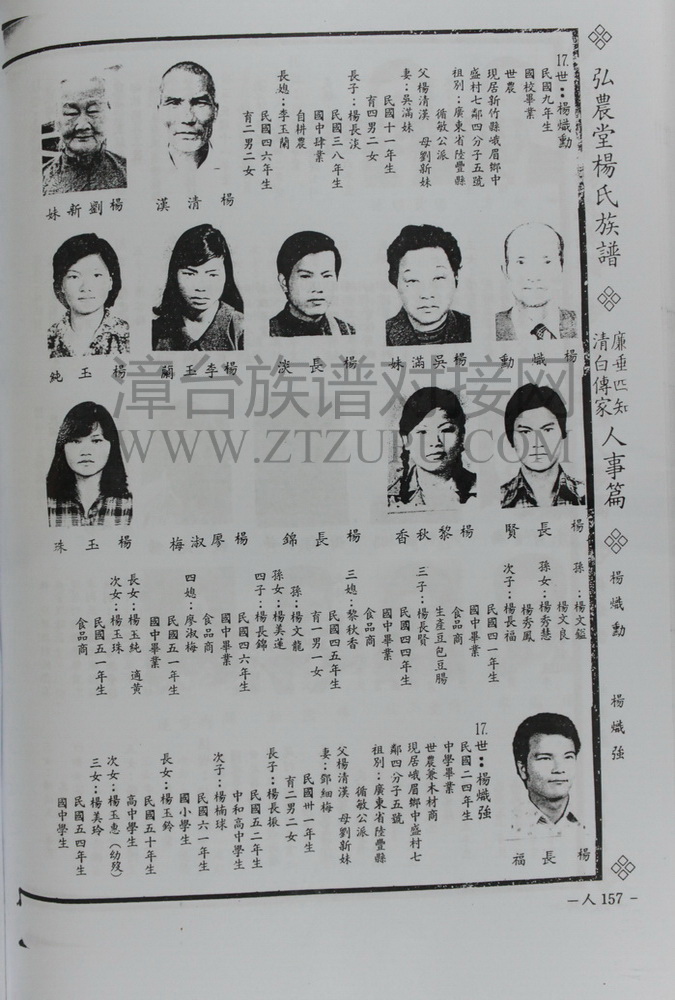 弘農堂楊氏族譜
廉垂四知
清白傳家
人事篇
楊熾勳
楊熾強
17.世：楊熾勳
民國九年生
國校畢業
世農
現居新竹縣峨眉鄉中
盛村七鄰四分子五號
祖別：廣東省陸豐縣
循敏公派
父楊清漢 母劉新妹
妻：吳滿妹
民國十一年生
育四男二女
長子：楊長淡
民國三八年生
國中肆業
自耕農
長媳：李玉蘭
民國四六年生
育二男二女
楊清漢
楊劉新妹
楊熾勳
楊吳滿妹
楊長淡
楊李玉蘭
楊玉純
漳台族谱对接网
WWW.ZTZUPU.COM
楊長賢
楊黎秋香
楊長錦
楊廖淑梅
楊玉珠
孫：楊文鎰
楊文良
孫女：楊秀慧
楊秀鳳
次子：楊長福
民國四一年生
國中畢業
食品商
生產豆包豆腸
三子：楊長賢
民國四四年生
國中畢業
食品商
三媳：黎秋香
民國四五年生
育一男一女
孫：楊文龍
孫女：楊美蓮
四子：楊長錦
民國四六年生
國中畢業
食品商
四媳：廖淑梅
民國五一年生
國中畢業
長女：楊玉純 適黃
次女：楊玉珠
民國五一年生
食品商
楊長福
17.世：楊熾強
民國二四年生
中學畢業
世農兼木材商
現居峨眉鄉中盛村七
鄰四分子五號
祖別：廣東省陸豐縣
循敏公派
父楊清漢 母劉新妹
妻：鄧細梅
民國卅一年生
育二男二女
長子：楊長振
民國五二年生
中和高中學生
次子：楊楠球
民國六一年生
國小學生
長女：楊玉鈴
民國五十年生
高中學生
次女：楊玉惠（幼歿）
三女：楊美玲
民國五四年生
國中學生
－人 157 -